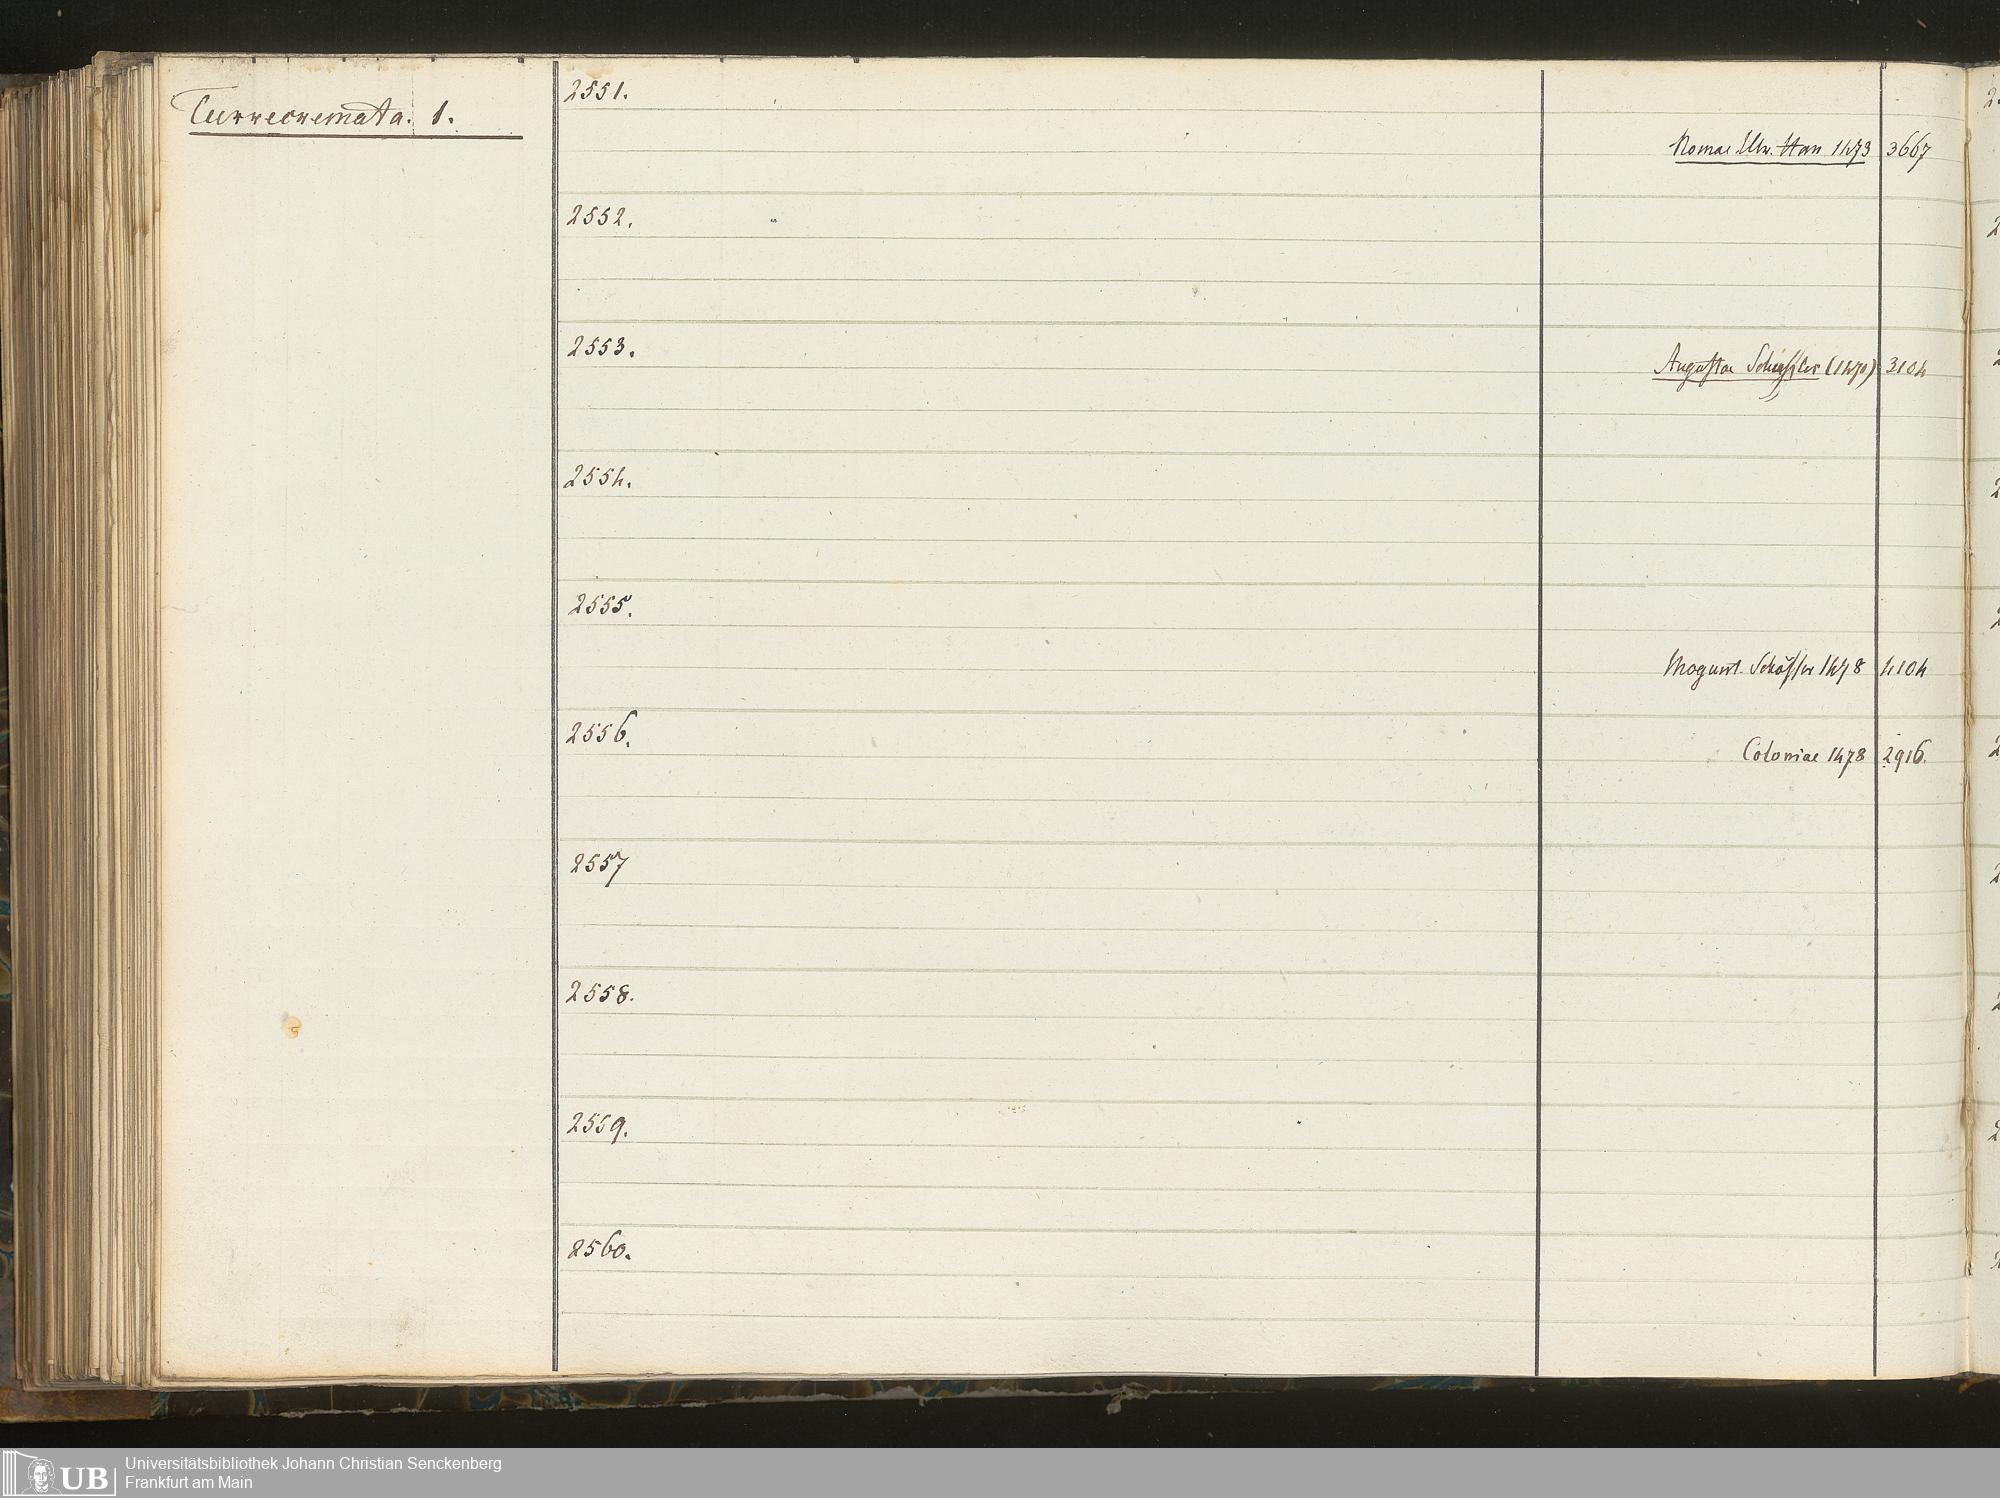 Turrecremata. 1.
2551.
Romae Ulr. Han 1473 3667
2552.
2553.
Augustae Schussler (1470) 3104
2554.
2555.
Mogunt. Schöffer 1478 4104
2556.
Coloniae 1478 2916.
2557
2558.
2559.
2560.
UB
Universitätsbibliothek Johann Christian Senckenberg
Frankfurt am Main